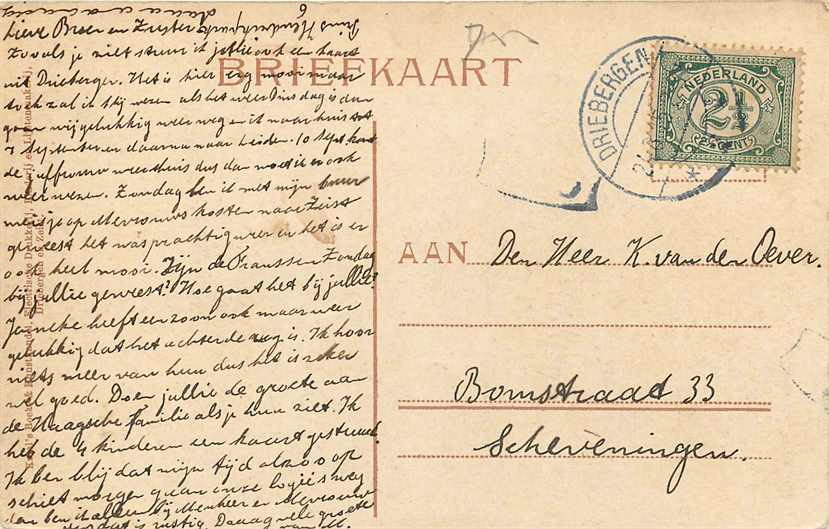 Lieve Broer en Zuster
Zooals je ziet stuur ik jullie ook een kaart
uit Driebergen. Het is hier erg mooi maar
toch zal ik blij wezen als het weer Dinsdag is dan
gaan wij gelukkig weer weg en ik naar huis tot
7 September en daarna naar Leiden. 10 Sept. komt
de Juffrouw weer thuis dus dan moet ik er ook
weer wezen. Zondag ben ik met mijn buur
meisje op Mevrouws kosten naar Zeist
geweest het was prachtig weer en het is er
ook heel mooi. Zijn de Franssen Zondag
bij jullie geweest? Hoe gaat het bij jullie?
Janneke heeft een zoon ook maar weer
gelukkig dat het achter de rug is. Ik hoor
niets meer van hun dus het is zeker
wel goed. Doen jullie de groete aan
de Haagsche familie als je hun ziet. Ik
heb de 4 kinderen een kaart gestuurd.
Ik ben blij dat mijn tijd alzoo op
schiet morgen gaan onze logies weg
dan ben ik alleen bij Menheer en Mevrouw
dat is rustig. Daag vele groete
van M.
BRIEFKAART
DRIEBERGEN
NEDERLAND
2½
CENT
AAN Den Heer K. van den Oever.
Bomstraat 33
Scheveningen.